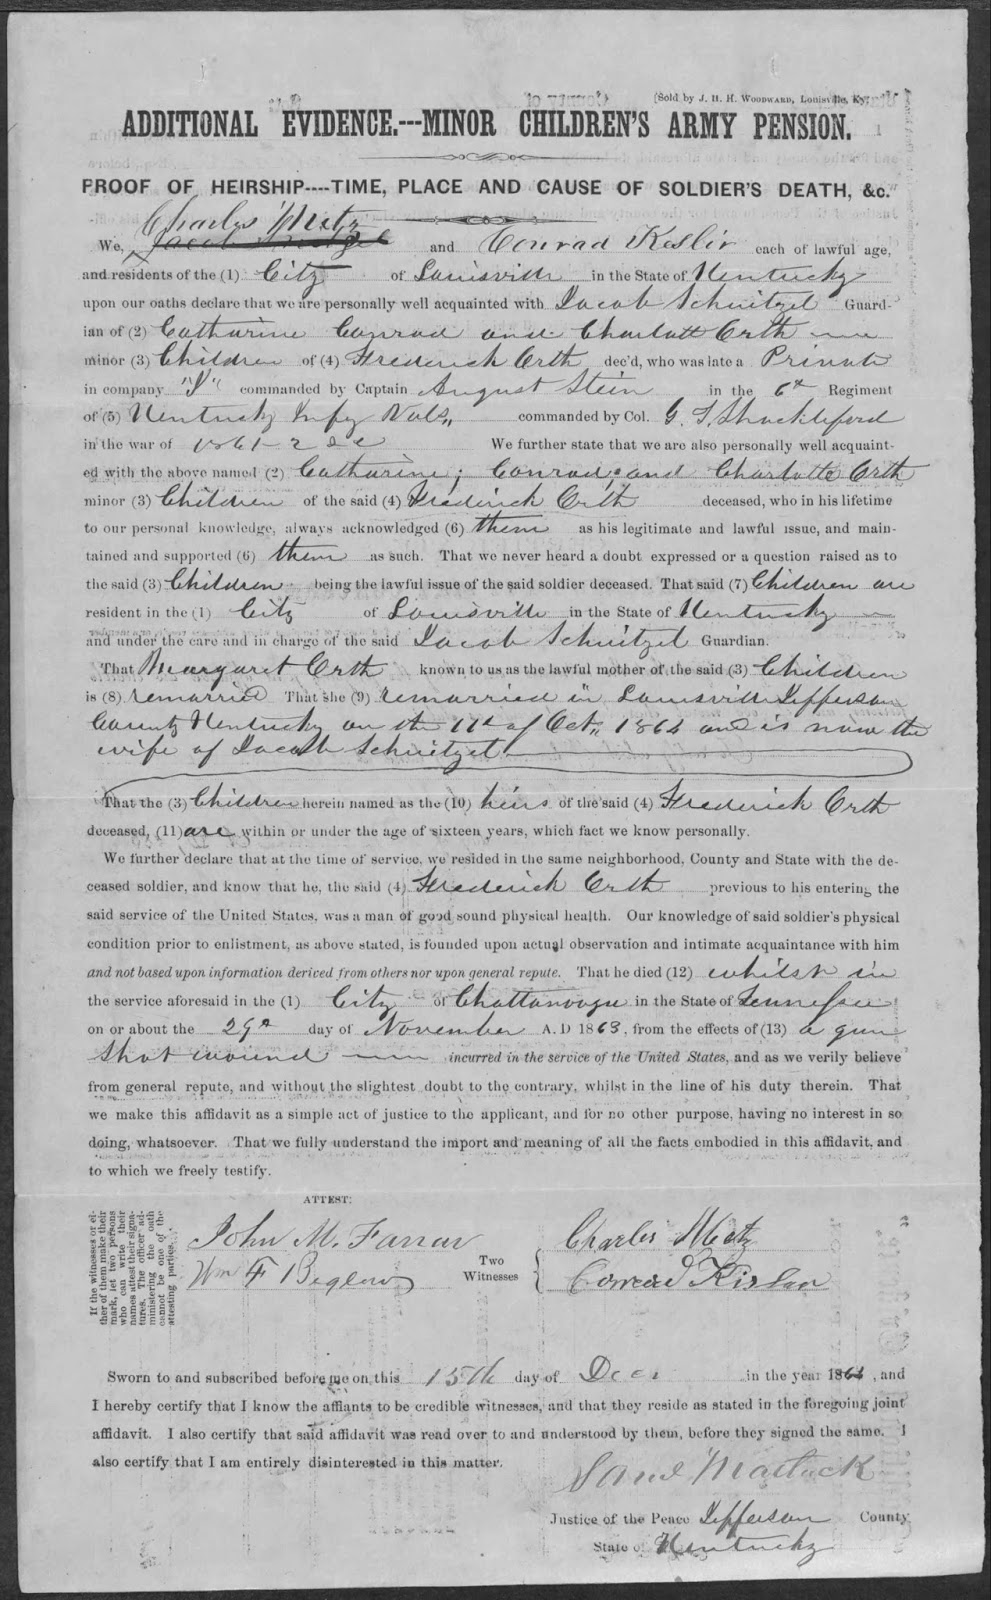 (Sold by J. H. H. WOODWARD, Louisville, Ky.
ADDITIONAL EVIDENCE.---MINOR CHILDREN'S ARMY PENSION.
PROOF OF HEIRSHIP----TIME, PLACE AND CAUSE OF SOLDIER'S DEATH, &c.
Charles Metz
We, Jacob Schnitzel and Conrad Keslir each of lawful age,
and residents of the (1) City of Louisville in the State of Kentucky
upon our oaths declare that we are personally well acquainted with Jacob Schnitzel Guard-
ian of (2) Catharine Conrad and Charlott Orth
minor (3) Children of (4) Frederick Orth dec'd, who was late a Private
in company "I" commanded by Captain August Stein in the 6th Regiment
of (5) Kentucky Infy Vols,, commanded by Col. G. T. Shackleford
in the war of 1861-2 &c We further state that we are also personally well acquaint-
ed with the above named (2) Catharine; Conrad; and Charlotte Orth
minor (3) Children of the said (4) Frederick Orth deceased, who in his lifetime
to our personal knowledge, always acknowledged (6) them as his legitimate and lawful issue, and main-
tained and supported (6) them as such. That we never heard a doubt expressed or a question raised as to
the said (3) Children being the lawful issue of the said soldier deceased. That said (7) Children are
resident in the (1) City of Louisville in the State of Kentucky
and under the care and in charge of the said Jacob Schnitzel Guardian.
That Margaret Orth known to us as the lawful mother of the said (3) Children
is (8) remarried That she (9) remarried in Louisville Jefferson
County Kentucky on the 11th of Oct,, 1864 and is now the
wife of Jacob Schnitzel
That the (3) Children herein named as the (10) heirs of the said (4) Frederick Orth
deceased, (11) are within or under the age of sixteen years, which fact we know personally.
We further declare that at the time of service, we resided in the same neighborhood, County and State with the de-
ceased soldier, and know that he, the said (4) Frederick Orth previous to his entering the
said service of the United States, was a man of good sound physical health. Our knowledge of said soldier's physical
condition prior to enlistment, as above stated, is founded upon actual observation and intimate acquaintance with him
and not based upon information derived from others nor upon general repute. That he died (12) whilst in
the service aforesaid in the (1) City of Chattanooga in the State of Tennessee
on or about the 29th day of November A. D 1863, from the effects of (13) a gun
shot wound incurred in the service of the United States, and as we verily believe
from general repute, and without the slightest doubt to the contrary, whilst in the line of his duty therein. That
we make this affidavit as a simple act of justice to the applicant, and for no other purpose, having no interest in so
doing, whatsoever. That we fully understand the import and meaning of all the facts embodied in this affidavit, and
to which we freely testify.
ATTEST:
If the witnesses or ei-
ther of them make their
mark, let two persons
who can write their
names attest their signa-
tures. The officer ad-
ministering the oath
cannot be one of the
attesting parties.
John M. Farrar
Wm F Beglow
Two
Witnesses
Charles Metz
Conrad Kislar
Sworn to and subscribed before me on this 15th day of Decr in the year 1864, and
I hereby certify that I know the affiants to be credible witnesses, and that they reside as stated in the foregoing joint
affidavit. I also certify that said affidavit was read over to and understood by them, before they signed the same. I
also certify that I am entirely disinterested in this matter.
Saml Matlack
Justice of the Peace Jefferson County
State of Kentucky